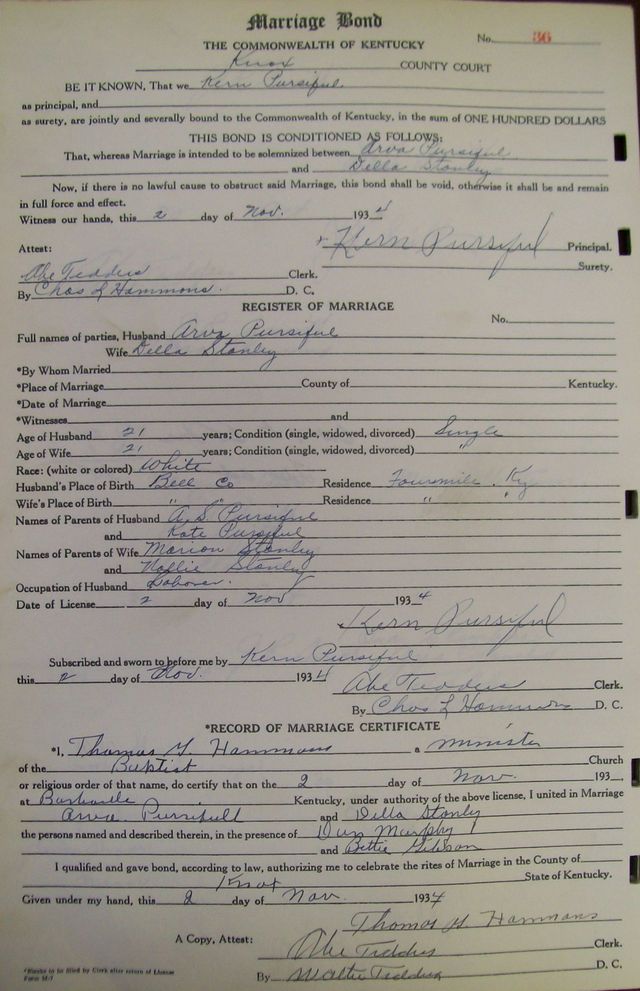 Marriage Bond
No. 36
THE COMMONWEALTH OF KENTUCKY
Knox COUNTY COURT
BE IT KNOWN, That we Kern Pursiful
as principal, and
as surety, are jointly and severally bound to the Commonwealth of Kentucky, in the sum of ONE HUNDRED DOLLARS
THIS BOND IS CONDITIONED AS FOLLOWS:
That, whereas Marriage is intended to be solemnized between Arva Pursiful
and Della Stanley
Now, if there is no lawful cause to obstruct said Marriage, this bond shall be void, otherwise it shall be and remain
in full force and effect.
Witness our hands, this 2 day of Nov. 1934
Kern Pursiful Principal.
Attest:
Surety.
Abe Tedders Clerk.
By Chas L Hammons. D. C.
REGISTER OF MARRIAGE
No.
Full names of parties, Husband Arva Pursiful
Wife Della Stanley
*By Whom Married
*Place of Marriage County of Kentucky.
*Date of Marriage
*Witnesses and
Age of Husband 21 years; Condition (single, widowed, divorced) Single
Age of Wife 21 years; Condition (single, widowed, divorced) "
Race: (white or colored) White
Husband's Place of Birth Bell Co Residence Fourmile, Ky
Wife's Place of Birth " " Residence " "
Names of Parents of Husband A. S. Pursiful
and Kate Pursiful
Names of Parents of Wife Marion Stanley
and Nollie Stanley
Occupation of Husband Laborer.
Date of License 2 day of Nov 1934
Kern Pursiful
Subscribed and sworn to before me by Kern Pursiful
this 2 day of Nov. 1934
Abe Tedders Clerk.
By Chas L Hammons D. C.
*RECORD OF MARRIAGE CERTIFICATE
*I, Thomas Hammons a minister
of the Baptist Church
or religious order of that name, do certify that on the 2 day of Nov. 193
at Kentucky, under authority of the above license, I united in Marriage
Arva Pursifull and Della Stanly
the persons named and described therein, in the presence of Dan Murphy
and Bettie Gibson
I qualified and gave bond, according to law, authorizing me to celebrate the rites of Marriage in the County of
Knox State of Kentucky.
Given under my hand, this 2 day of Nov. 1934
Thomas Hammons
A Copy, Attest: Abe Tedders Clerk.
By Walter Tedders D. C.
*Blanks to be filled by Clerk after return of License
Form M-7